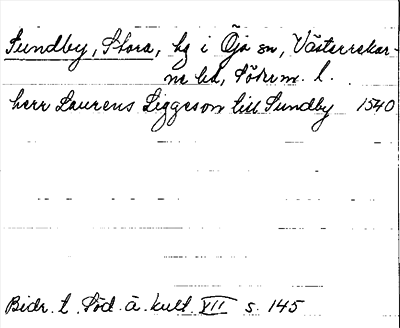 Sundby, Stora, hg i Öja sn, Västerrekar-
ne hd, Söderm. l.
herr Laurens Siggeson till Sundby 1540
Bidr. t. Söd. ä. kult. VII s. 145